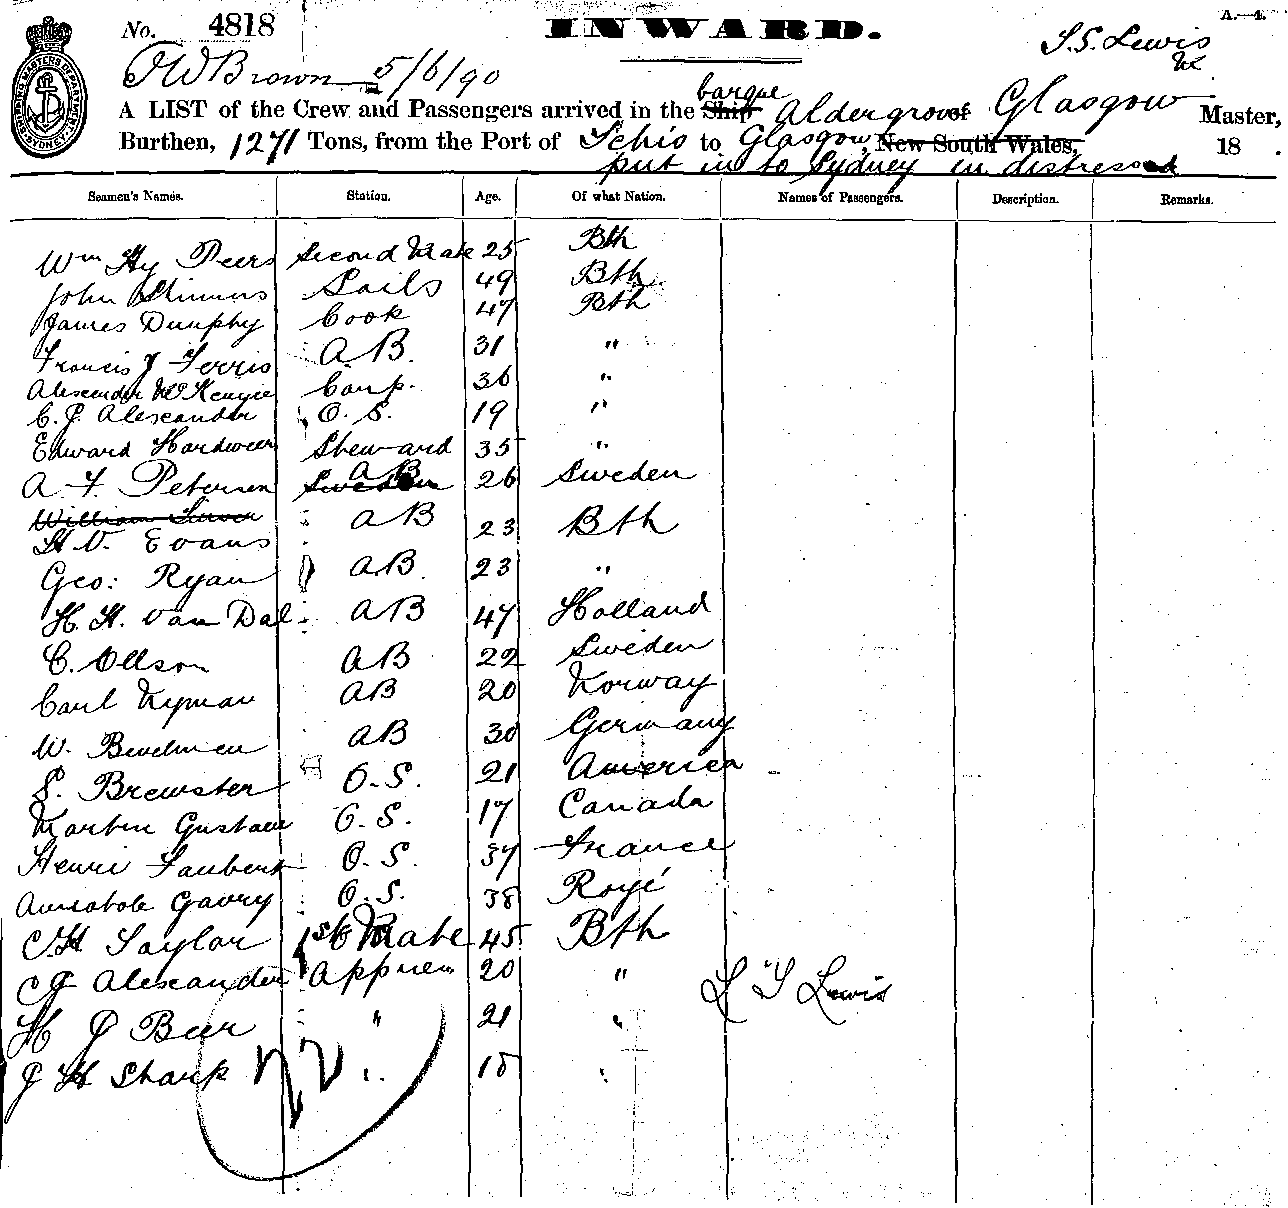 No. 4818 INWARD. A.—4.
J. W Brown 5/6/90 Lewis
A LIST of the Crew and Passengers arrived in the Ship barque Aldergrove of Glasgow Master,
Burthen, 1271 Tons, from the Port of to Glasgow, New South Wales, 18 .
put in to Sydney in distress
Seamen's Names. Station. Age. Of what Nation. Names of Passengers. Description. Remarks.
Wm Hy Peers Second Mate 25 Bth
John Sails 49 Bth
James Dunphy Cook 47 Bth
Francis J Ferris AB. 31 "
Alexander McKenzie Carp. 36 "
C. J. Alexander O. S. 19 "
Edward Steward 35 "
A. F. Petersen AB 26 Sweden
William AB 23 Bth
H V. Evans
Geo: Ryan AB 23 "
H. H. Van Dal AB 47 Holland
C. Ollson AB 22 Sweden
Carl Nyman AB 20 Norway
W. AB 30 Germany
S. Brewster O. S. 21 America
Martin Gustave O. S. 17 Canada
Henri Faubert O. S. 37 France
Gavry O. S. 38
C H Taylor 1st Mate 45 Bth
C J Alexander 20 "
H J Beer " 21 "
J H Sharp " 18 "
Lewis
22